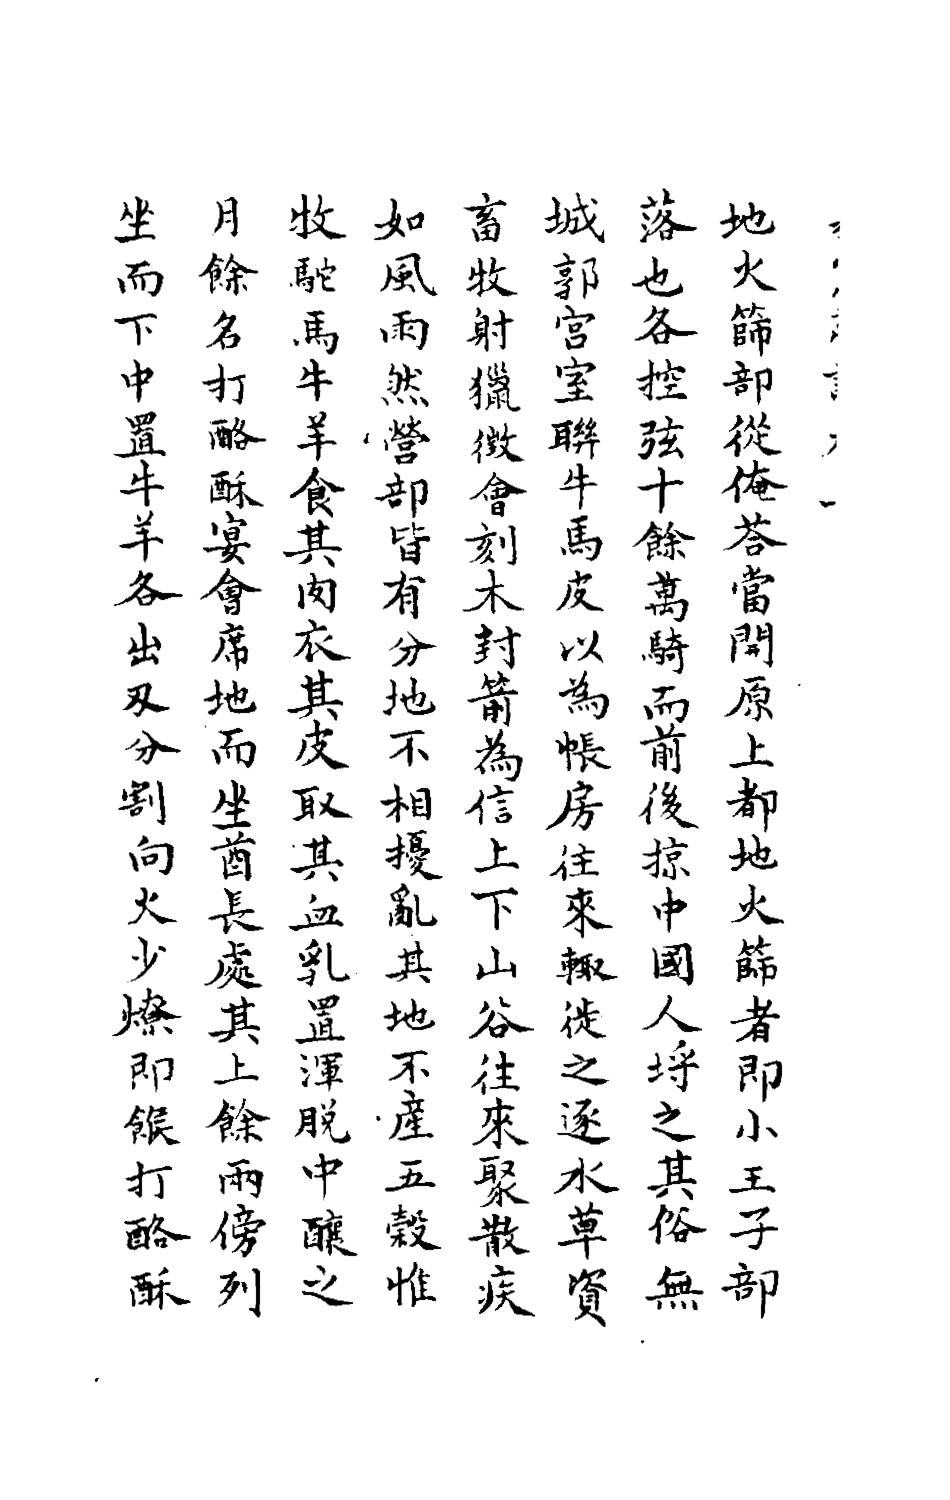 地火篩部從俺荅當開原上都地火篩者即小王子部
落也各控弦十餘萬騎而前後掠中國人埒之其俗無
城郭宮室聯牛馬皮以為帳房往來輙徙之逐水草資
畜牧射獵徴會刻木封箭為信上下山谷往來聚散疾
如風雨然營部皆有分地不相擾亂其地不産五穀惟
牧駝馬牛羊食其肉衣其皮取其血乳置渾脱中釀之
月餘名打酪酥宴會席地而坐酋長處其上餘兩傍列
坐而下中置牛羊各出刄分割向火少燎即餱打酪酥